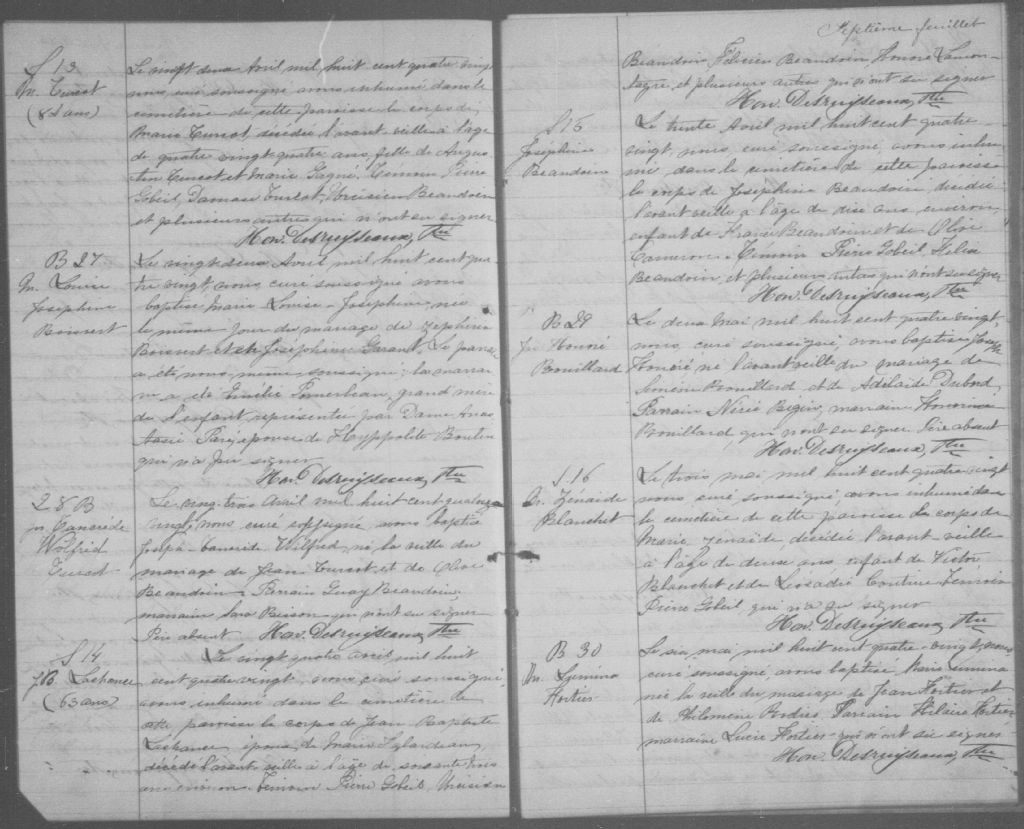 S 13
M. Turcot
(84 ans)
Le vingt deux Avril mil, huit cent quatre vingt
nous curé soussigné avons inhumé dans le
cimetière de cette paroisse le corps de
Marie Turcot, décédée l'avant-veille à l'âge
de quatre vingt quatre ans fille de Augus-
tin Turcot et Marie Gagné. Témoin Pierre
Gobeil, Damase Turcot, Onésime Beaudoin
et plusieurs autres qui n'ont su signer
Hon. Desruisseaux, Ptre
B 27
M. Louise
Joséphine
Boisvert
Le vingt deux Avril mil huit cent qua-
tre vingt, nous curé soussigné avons
baptisé Marie Louise-Joséphine, née
le même jour du mariage de Zéphirin
Boisvert et de Joséphine Garant. Le parrain
a été nous même soussigné; la marrai-
ne a été Émélie Pomerleau, grand'mère
de l'enfant, représentée par Dame Anas-
tasie Paré, épouse de Hyppolite Boutin
qui n'a pu signer
Hon. Desruisseaux, Ptre
28 B
Jos. Tancrède
Wilfrid
Turcot
Le vingt-trois avril mil huit cent quatre
vingt, nous curé soussigné, avons baptisé
Joseph-Tancrède Wilfred, né la veille du
mariage de Jean Turcot et de Olive
Beaudoin. Parrain Beaudoin,
marraine Sara Bisson qui n'ont su signer
Père absent Hon. Desruisseaux, Ptre
S 14
J.B. Lachance
(63 ans)
Le vingt quatre avril mil huit
cent quatre vingt, nous curé soussigné,
avons inhumé dans le cimetière de
cette paroisse le corps de Jean Baptiste
Lachance, époux de Marie
décédé l'avant-veille à l'âge de soixante trois
ans environ. Témoin Pierre Gobeil, Onésime
Septième feuillet
Beaudoin Félicien Beaudoin, Honoré Lamon-
tagne, et plusieurs autres qui n'ont su signer
Hon. Desruisseaux, Ptre
S 15
Joséphine
Beaudoin
Le trente Avril mil huit cent quatre-
vingt, nous, curé soussigné, avons inhu-
mé, dans le cimetière de cette paroisse
le corps de Joséphine Beaudoin, décédée
l'avant veille à l'âge de dix ans environ,
enfant de Beaudoin et de Olive
Cameron. Témoin Pierre Gobeil,
Beaudoin, et plusieurs autres qui n'ont su signer
Hon. Desruisseaux, Ptre
B 29
Jos Honoré
Brouillard
Le deux Mai mil huit cent quatre vingt,
nous, curé soussigné, avons baptisé Joseph
Honoré né l'avant veille du mariage de
Siméon Brouillard et de Adélaïde Dubord
Parrain Nérée Bégin, marraine Honorine
Brouillard, qui n'ont su signer. Père absent
Hon. Desruisseaux, Ptre
S 16
M. Zénaide
Blanchet
Le trois mai mil huit cent quatre vingt
nous curé soussigné, avons inhumé dans
le cimetière de cette paroisse le corps de
Marie Zénaide, décédée l'avant veille
à l'âge de deux ans enfant de Victor
Blanchet et de Léocadie Couture. Témoin
Pierre Gobeil, qui n'a pu signer
Hon. Desruisseaux, Ptre
B 30
M.
Fortier
Le six mai mil huit cent quatre-vingt, nous
curé soussigné, avons baptisé Marie
née la veille du mariage de Jean Fortier et
de Philomène Parrain Hilaire Fortier
marraine Lucie Fortier qui n'ont su signer
Hon. Desruisseaux, Ptre